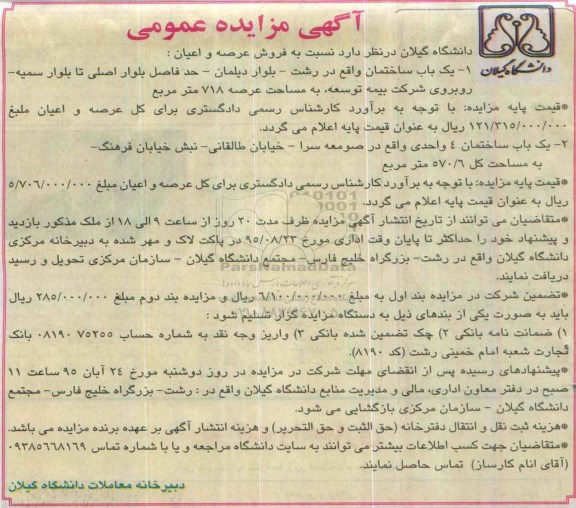 آگهی مزایده عمومی
دانشگاه گیلان
دانشگاه گیلان درنظر دارد نسبت به فروش عرصه و اعیان :
۱- یک باب ساختمان واقع در رشت - بلوار دیلمان - حد فاصل بلوار اصلی تا بلوار سمیه-
روبروی شرکت بیمه توسعه، به مساحت عرصه ۷۱۸ متر مربع
*قیمت پایه مزایده: با توجه به برآورد کارشناس رسمی دادگستری برای کل عرصه و اعیان ملبغ
۱۲۱/۳۱۵/۰۰۰/۰۰۰ ریال به عنوان قیمت پایه اعلام می گردد.
۲- یک باب ساختمان ٤ واحدی واقع در صومعه سرا - خیابان طالقانی- نبش خیابان فرهنگ-
به مساحت کل ۵۷۰/۶ متر مربع
*قیمت پایه مزایده: با توجه به برآورد کارشناس رسمی دادگستری برای کل عرصه و اعیان مبلغ ۵/۷۰۶/۰۰۰/۰۰۰
ریال به عنوان قیمت پایه اعلام می گردد.
*متقاضیان می توانند از تاریخ انتشار آگهی مزایده ظرف مدت ۲۰ روز از ساعت ۹ الی ۱۸ از ملک مذکور بازدید
و پیشنهاد خود را حداکثر تا پایان وقت اداری مورخ ۹۵/۰۸/۲۳ در پاکت لاک و مهر شده به دبیرخانه مرکزی
دانشگاه گیلان واقع در رشت- بزرگراه خلیج فارس- مجتمع دانشگاه گیلان - سازمان مرکزی تحویل و رسید
دریافت نمایند.
*تضمین شرکت در مزایده بند اول به مبلغ ۶/۱۰۰/۰۰۰/۰۰۰ ریال و مزایده بند دوم مبلغ ۲۸۵/۰۰۰/۰۰۰ ریال
باید به صورت یکی از بندهای ذیل به دستگاه مزایده گزار تسلیم شود :
۱) ضمانت نامه بانکی ۲) چک تضمین شده بانکی ۳) واریز وجه نقد به شماره حساب ۷۵۲۵۵ ۰۸۱۹۰ بانک
تجارت شعبه امام خمینی رشت (کد ۸۱۹۰).
*پیشنهادهای رسیده پس از انقضای مهلت شرکت در مزایده در روز دوشنبه مورخ ۲٤ آبان ۹۵ ساعت ۱۱
صبح در دفتر معاون اداری، مالی و مدیریت منابع دانشگاه گیلان واقع در : رشت- بزرگراه خلیج فارس- مجتمع
دانشگاه گیلان - سازمان مرکزی بازگشایی می شود.
*هزینه ثبت نقل و انتقال دفترخانه (حق الثبت و حق التحریر) و هزینه انتشار آگهی بر عهده برنده مزایده می باشد.
*متقاضیان جهت کسب اطلاعات بیشتر می توانند به سایت دانشگاه مراجعه و یا با شماره تماس ۰۹۳۸۵۶۶۸۱۶۹
(آقای انام کارساز) تماس حاصل نمایند.
دبیرخانه معاملات دانشگاه گیلان
ParsNamadData